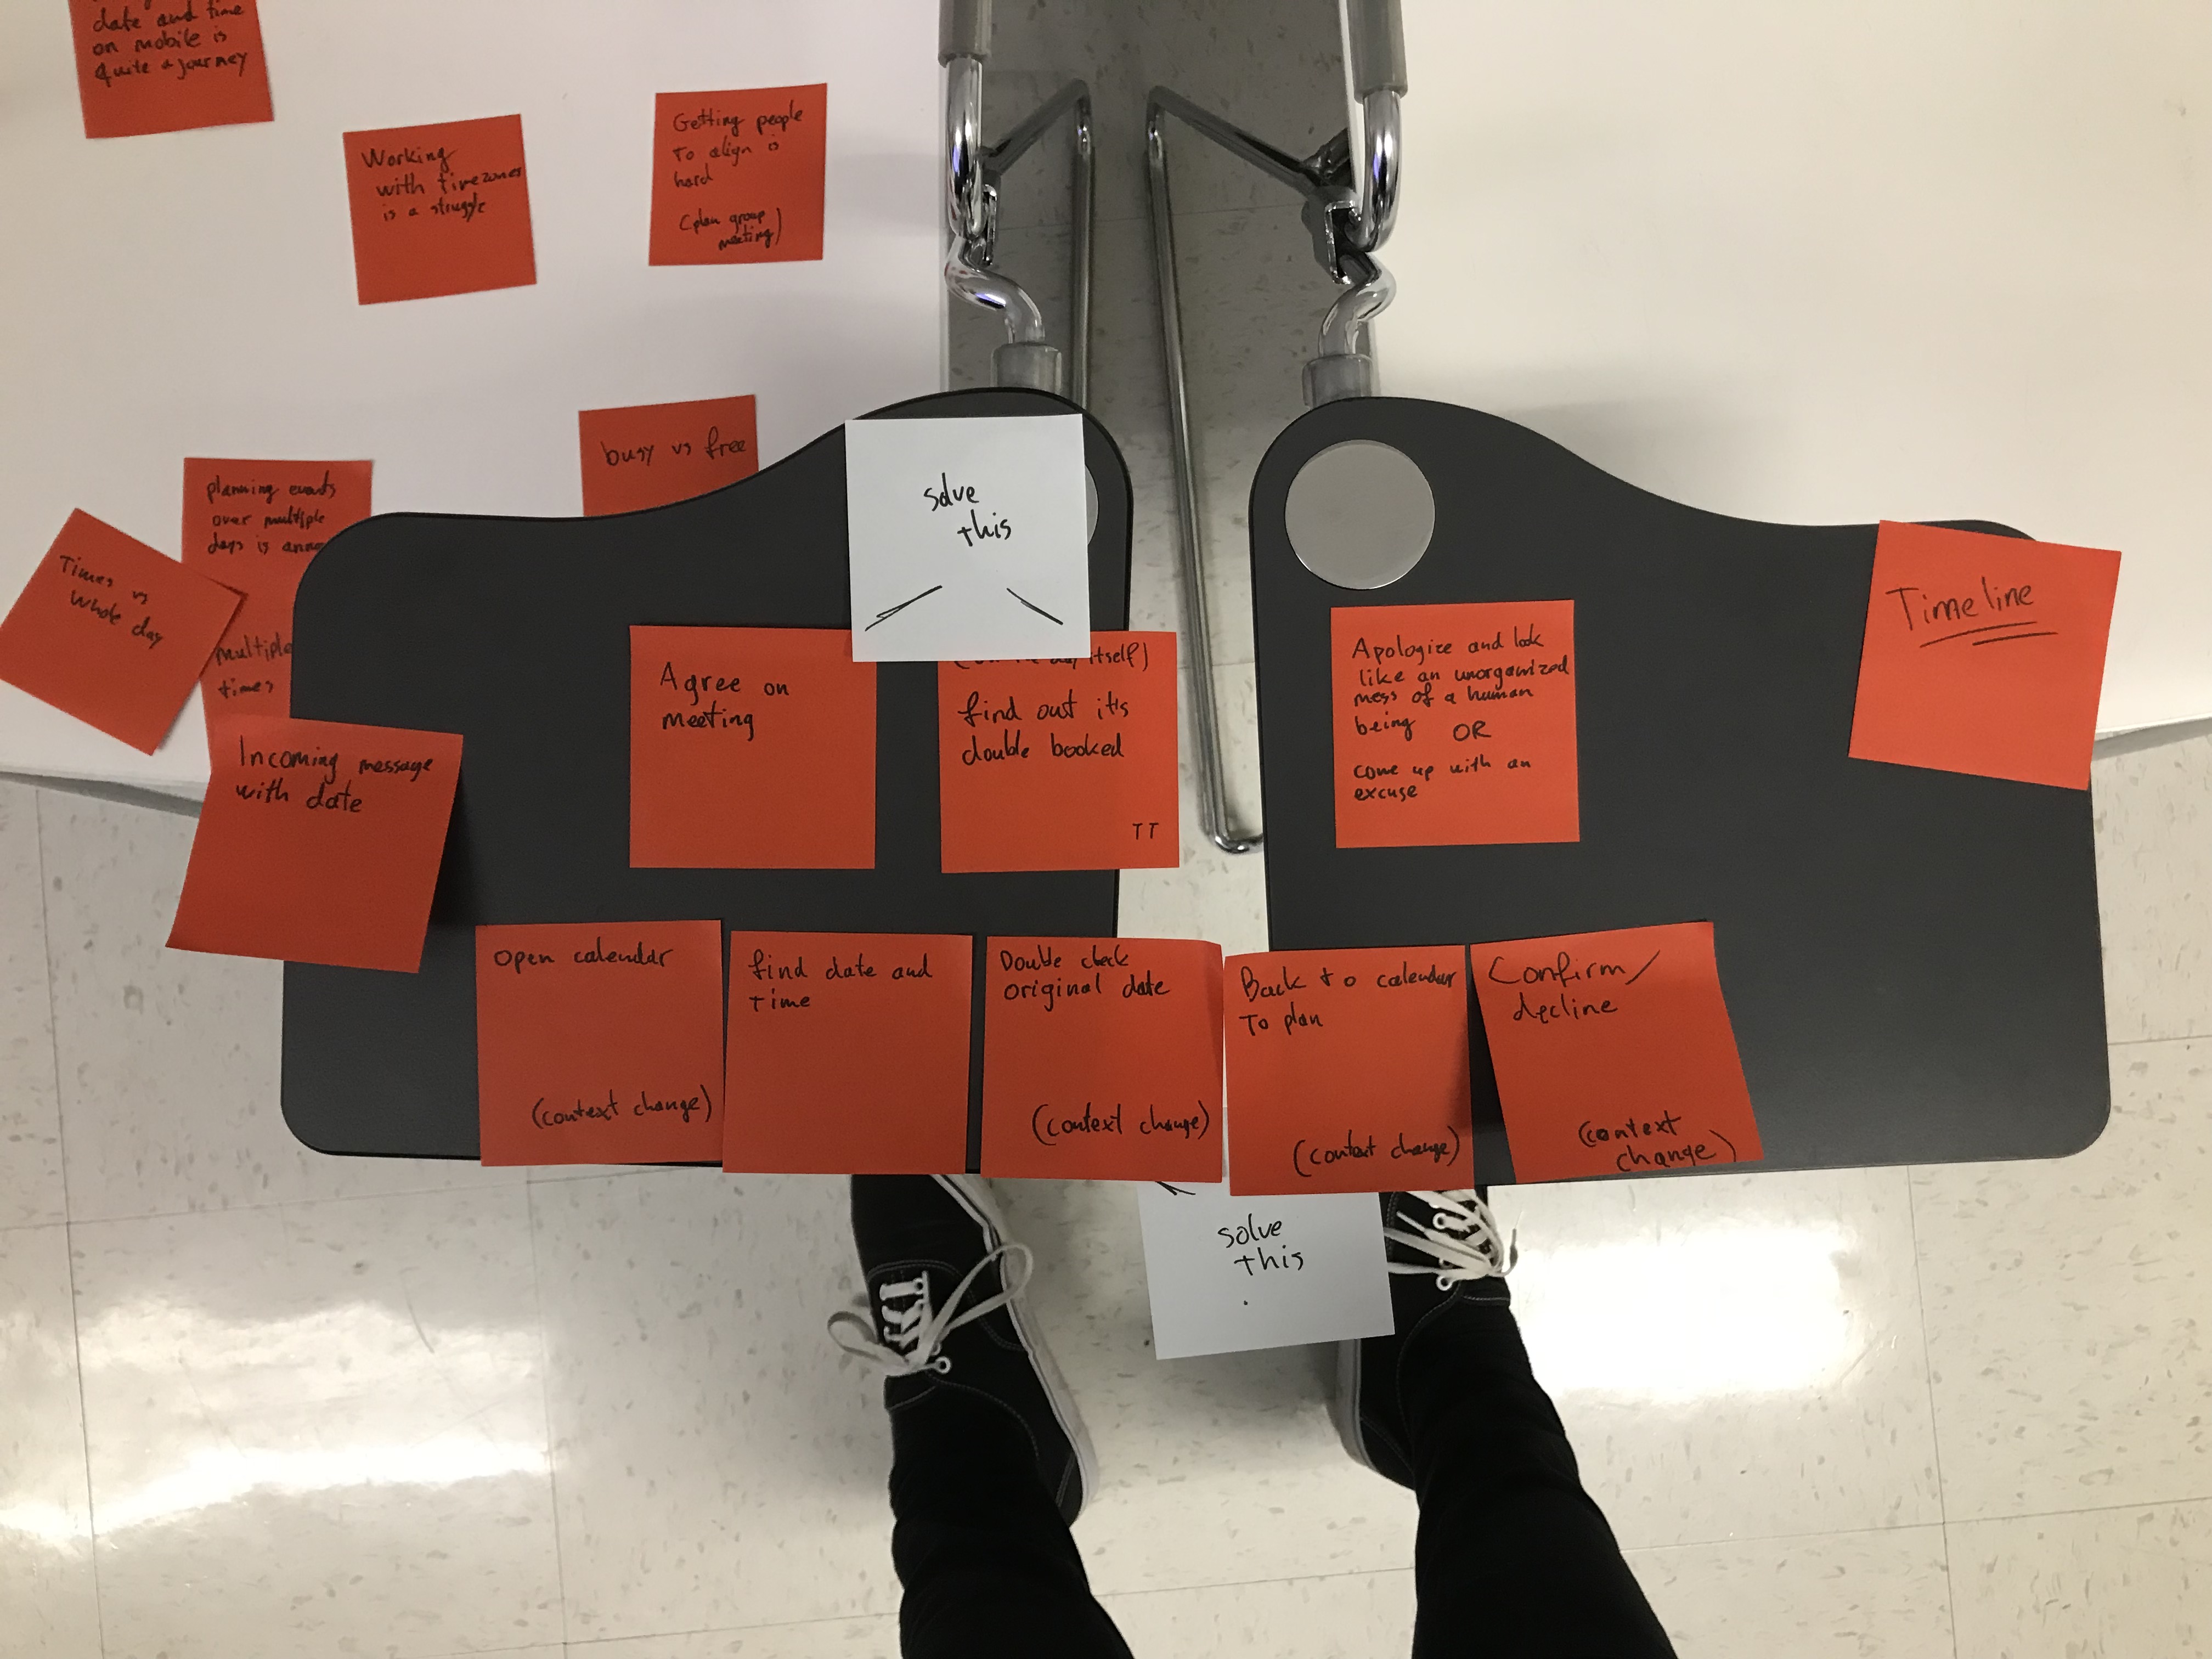 date and time
on mobile is
quite a journey
Working
with timezones
is a struggle
Getting people
to align is
hard
(plan group
meeting)
busy vs free
planning events
over multiple
days is
multiple
times
Times vs
whole day
solve
this
Timeline
Incoming message
with date
Agree on
meeting
itself)
find out it's
double booked
TT
Apologize and look
like an unorganized
mess of a human
being OR
come up with an
excuse
Open calendar
(context change)
find date and
time
Double check
original date
(context change)
Back to calendar
To plan
(context change)
Confirm/
decline
(context
change)
solve
this